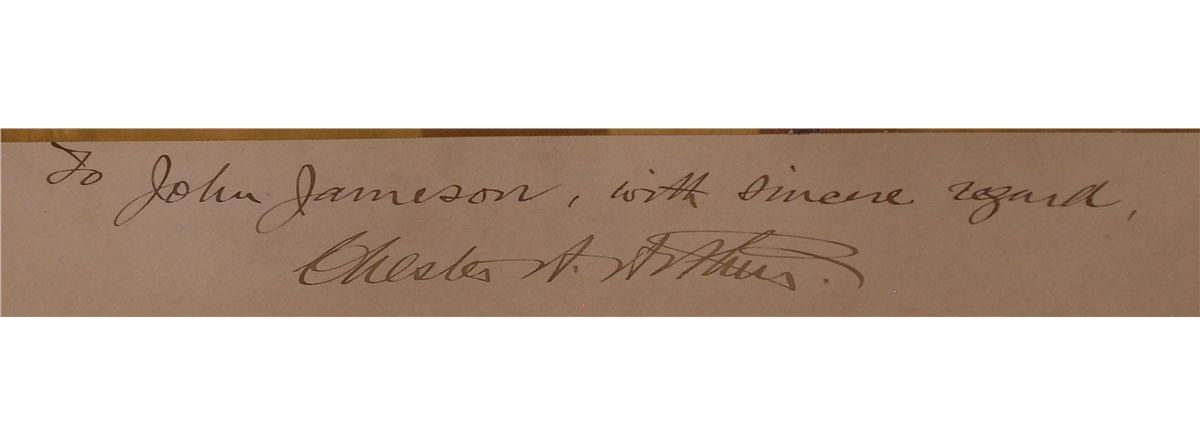 To John Jameson, with sincere regard,
Chester A. Arthur.